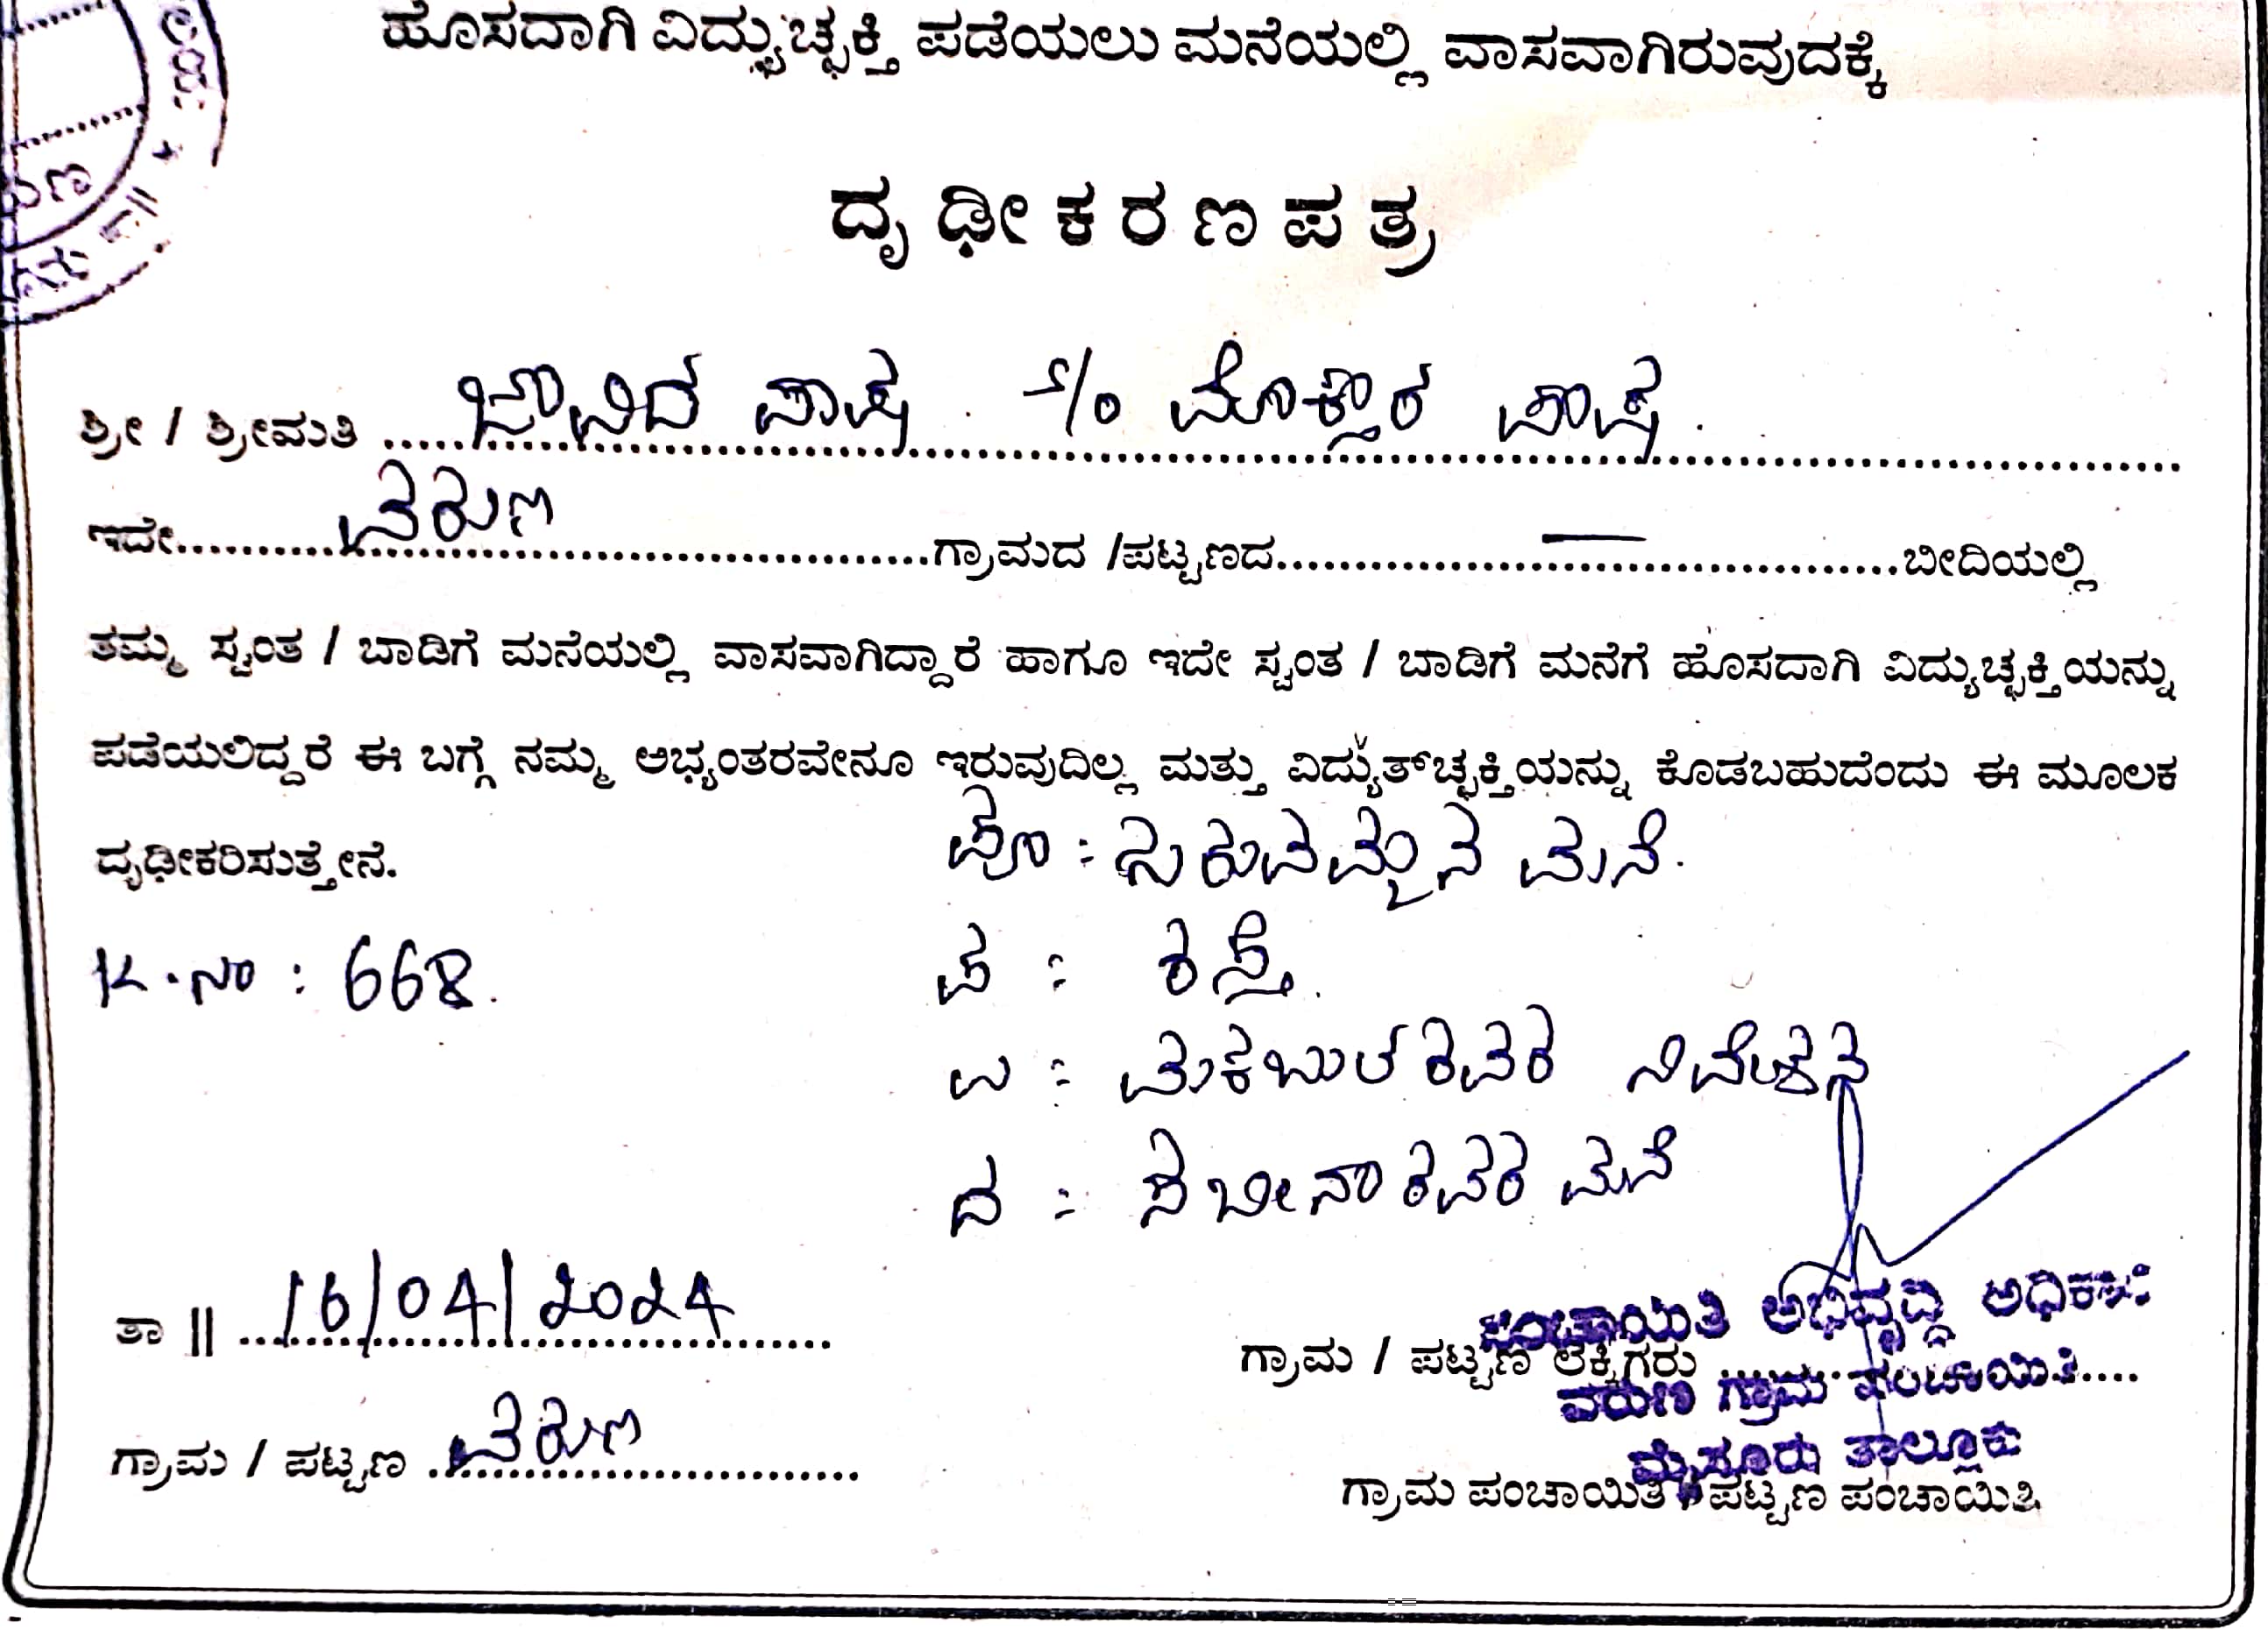 ಹೊಸದಾಗಿ ವಿದ್ಯುಚ್ಛಕ್ತಿ ಪಡೆಯಲು ಮನೆಯಲ್ಲಿ ವಾಸವಾಗಿರುವುದಕ್ಕೆ
ದೃಢೀಕರಣಪತ್ರ
ಶ್ರೀ / ಶ್ರೀಮತಿ ಜಾವಿದ ಪಾಷ S/o ಮೊಕ್ತಾರ ಪಾಷ.
ಇದೇ ವರುಣ ಗ್ರಾಮದ /ಪಟ್ಟಣದ — ಬೀದಿಯಲ್ಲಿ
ತಮ್ಮ ಸ್ವಂತ / ಬಾಡಿಗೆ ಮನೆಯಲ್ಲಿ ವಾಸವಾಗಿದ್ದಾರೆ ಹಾಗೂ ಇದೇ ಸ್ವಂತ / ಬಾಡಿಗೆ ಮನೆಗೆ ಹೊಸದಾಗಿ ವಿದ್ಯುಚ್ಛಕ್ತಿಯನ್ನು
ಪಡೆಯಲಿದ್ದರೆ ಈ ಬಗ್ಗೆ ನಮ್ಮ ಅಭ್ಯಂತರವೇನೂ ಇರುವುದಿಲ್ಲ ಮತ್ತು ವಿದ್ಯುತ್‌ಚ್ಛಕ್ತಿಯನ್ನು ಕೊಡಬಹುದೆಂದು ಈ ಮೂಲಕ
ದೃಢೀಕರಿಸುತ್ತೇನೆ.
ಪೂ : ಮನೆ.
K.ನಂ : 668.
ಪ : ರಸ್ತೆ.
ಉ : ಮಕಬುಲರವರ ನಿವೇಶನ
ದ : ಶಬೀನಾರವರ ಮನೆ
ತಾ || 16/04/2024
ಪಂಚಾಯಿತಿ ಅಭಿವೃದ್ಧಿ ಅಧಿಕಾರಿ
ಗ್ರಾಮ / ಪಟ್ಟಣ ಲೆಕ್ಕಿಗರು
ವರುಣ ಗ್ರಾಮ ಪಂಚಾಯಿತಿ
ಗ್ರಾಮ / ಪಟ್ಟಣ ವರುಣ
ಮೈಸೂರು ತಾಲ್ಲೂಕು
ಗ್ರಾಮ ಪಂಚಾಯಿತಿ / ಪಟ್ಟಣ ಪಂಚಾಯಿತಿ